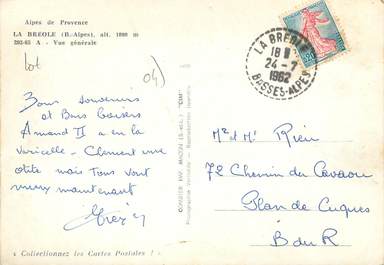 Alpes de Provence
LA BREOLE (B.-Alpes), alt. 1000 m
202-65 A - Vue générale
lot
04)
Bons souvenirs
et Bons Baisers
Armand II a eu la
varicelle - Clément une
otite mais Tous vont
mieux maintenant
« Collectionnez les Cartes Postales ! »
COMBIER IMP. MACON (S.-et-L.) "CIM"
Photographie Véritable - Reproduction interdite
LA BREOLE
18 H
24 - 7
1962
BASSES-ALPES
0,20
Mr et Mme Rieu
72 Chemin du
Plan de Cuques
B du R